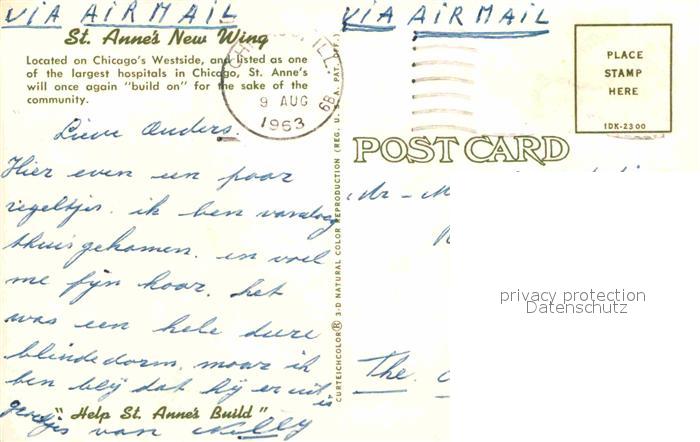 VIA AIR MAIL
St. Anne's New Wing
Located on Chicago's Westside, and listed as one
of the largest hospitals in Chicago, St. Anne's
will once again "build on" for the sake of the
community.
Lieve Ouders.
Hier even een paar
regeltjes. ik ben vandaag
thuis gekomen. en voel
me fijn hoor. het
was een hele dure
blinde darm. maar ik
ben blij dat hij er uit is
groetjes van Nelly
"Help St. Anne's Build"
CURTEICHCOLOR® 3-D NATURAL COLOR REPRODUCTION (REG. U.S.A. PAT. OFF.)
9 AUG
1963
VIA AIR MAIL
PLACE
STAMP
HERE
IDK-2300
POST CARD
Mr - M
The.
privacy protection
Datenschutz